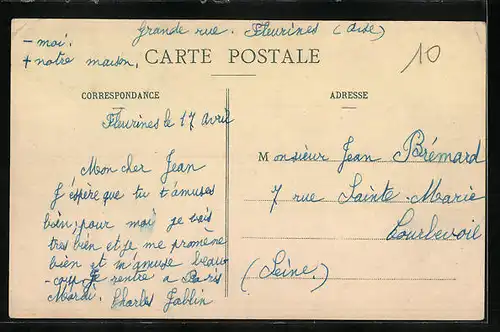 Grande rue. Fleurines (Oise)
- moi.
+ notre maison.
10
CARTE POSTALE
CORRESPONDANCE
ADRESSE
Fleurines le 17 Avril
Mon cher Jean
J'éspère que tu t'amuses
bien, pour moi je vais
tres bien et je me promène
bien et m'amuse beau-
coup. Je rentre a Paris
Mardi. Charles Jablin
Monsieur Jean Brémard
7 rue Sainte-Marie
Courbevoie
(Seine.)